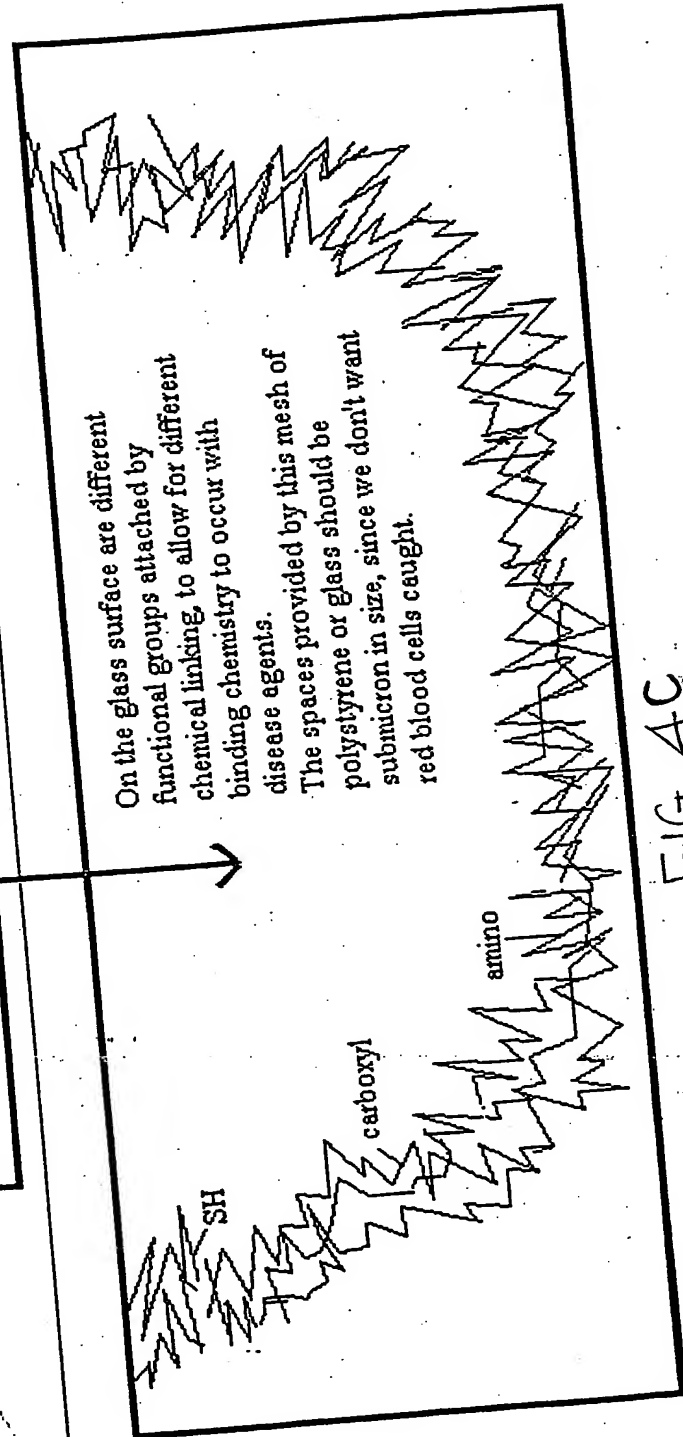 On the glass surface are different
functional groups attached by
chemical linking, to allow for different
binding chemistry to occur with
disease agents.
The spaces provided by this mesh of
polystyrene or glass should be
submicron in size, since we don't want
red blood cells caught.
SH
carboxyl
amino
FIG 4C